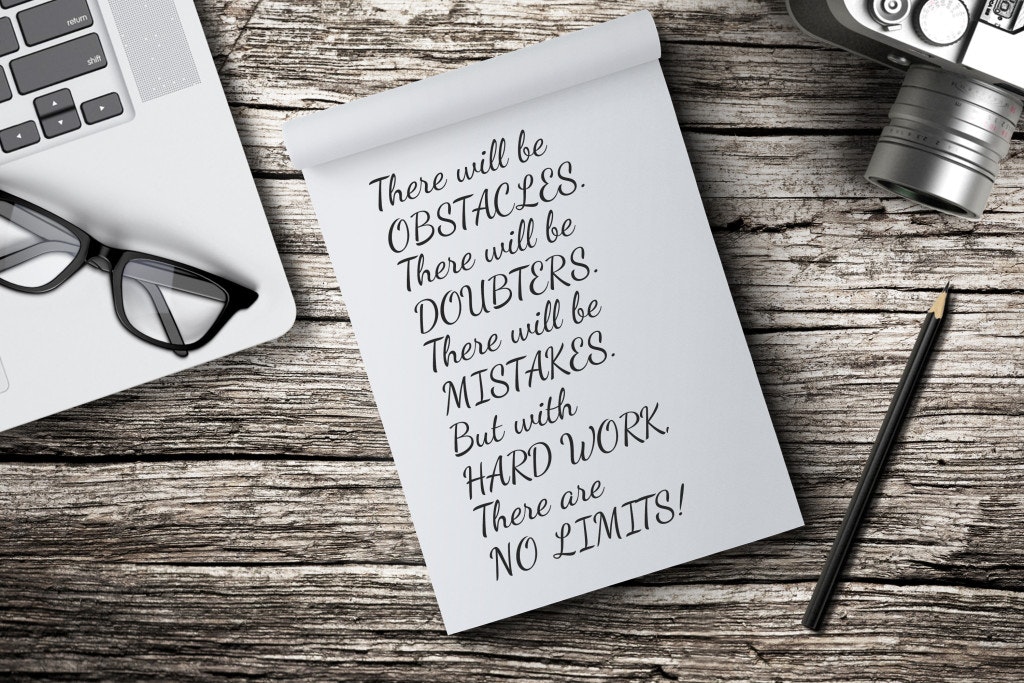 return
shift
There will be
OBSTACLES.
There will be
DOUBTERS.
There will be
MISTAKES.
But with
HARD WORK,
There are
NO LIMITS!